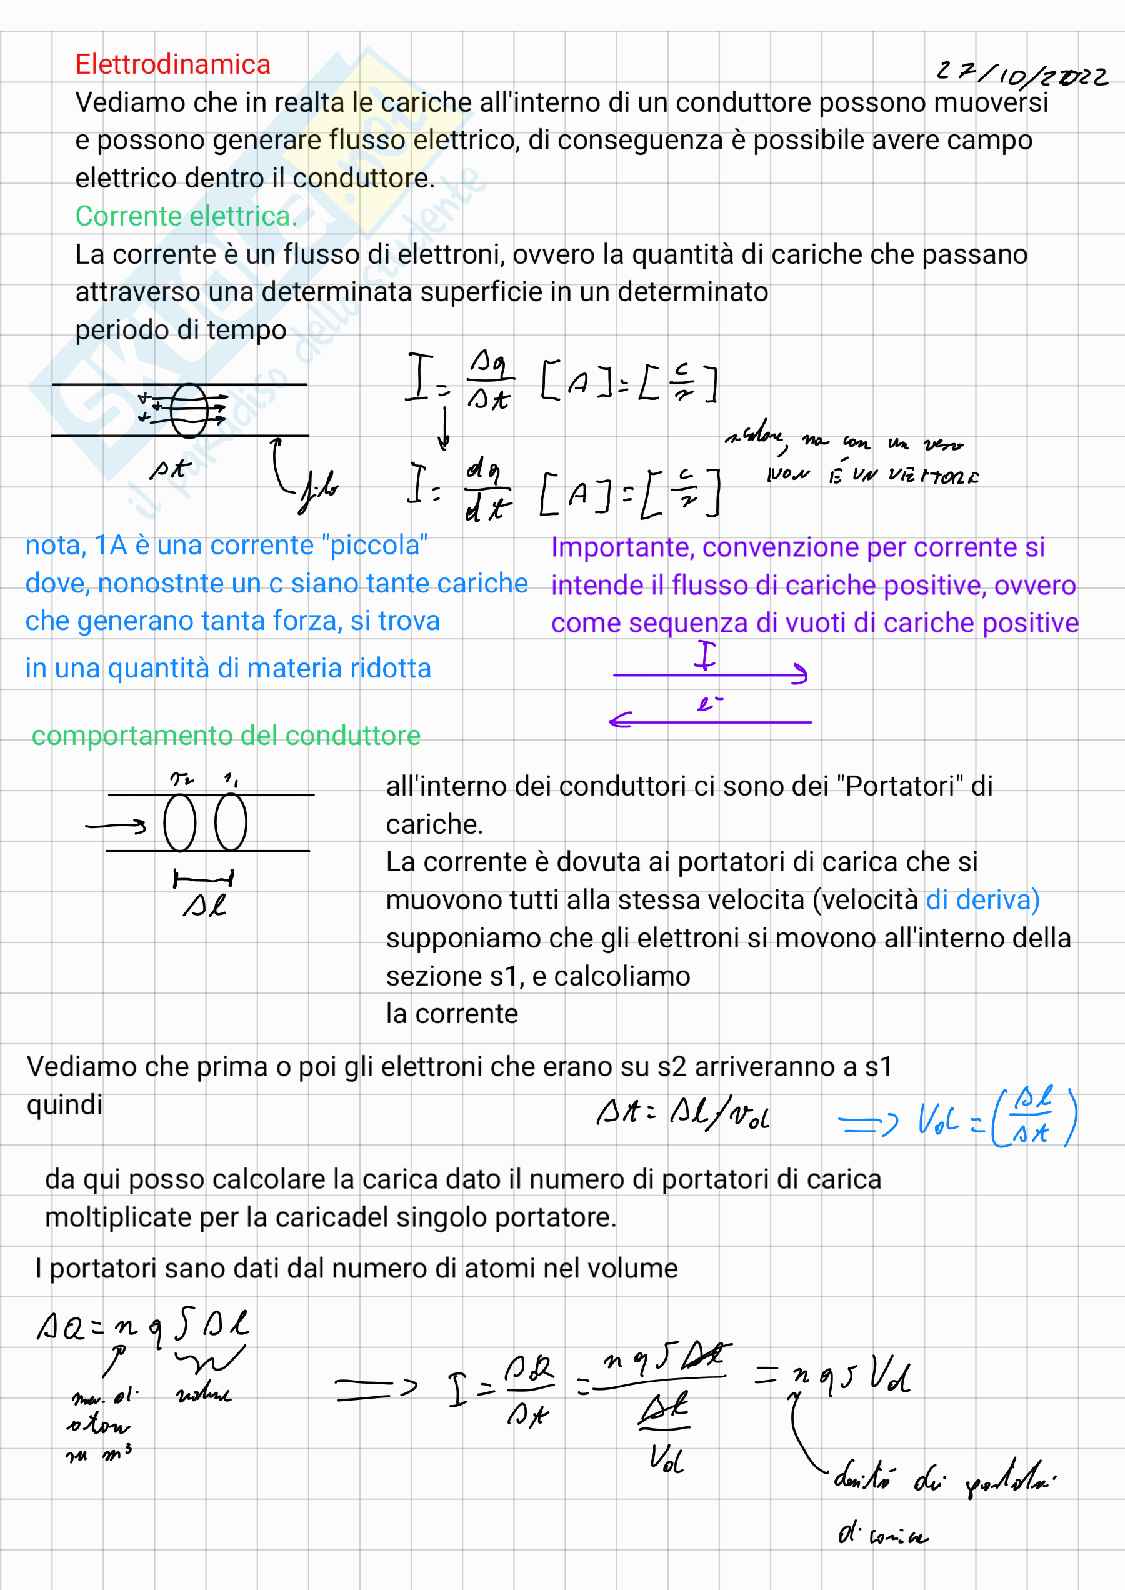 Elettrodinamica
27/10/2022
Vediamo che in realta le cariche all'interno di un conduttore possono muoversi
e possono generare flusso elettrico, di conseguenza è possibile avere campo
elettrico dentro il conduttore.
Corrente elettrica.
La corrente è un flusso di elettroni, ovvero la quantità di cariche che passano
attraverso una determinata superficie in un determinato
periodo di tempo
I = Δq/Δt [A] = [C/s]
Δt
filo
I = dq/dt [A] = [C/s]
scalare, ma con un verso
NON È UN VETTORE
nota, 1A è una corrente "piccola"
dove, nonostnte un c siano tante cariche
che generano tanta forza, si trova
in una quantità di materia ridotta
Importante, convenzione per corrente si
intende il flusso di cariche positive, ovvero
come sequenza di vuoti di cariche positive
I
e-
comportamento del conduttore
s2 s1
Δl
all'interno dei conduttori ci sono dei "Portatori" di
cariche.
La corrente è dovuta ai portatori di carica che si
muovono tutti alla stessa velocita (velocità di deriva)
supponiamo che gli elettroni si movono all'interno della
sezione s1, e calcoliamo
la corrente
Vediamo che prima o poi gli elettroni che erano su s2 arriveranno a s1
quindi
Δt = Δl/vd => vd = (Δl/Δt)
da qui posso calcolare la carica dato il numero di portatori di carica
moltiplicate per la caricadel singolo portatore.
I portatori sano dati dal numero di atomi nel volume
ΔQ = n q S Δl
num. di
atomi
in m³
volume
=> I = ΔQ/Δt = n q S Δl/(Δl/vd) = n q S vd
densità dei portatori
di carica
SKUOLA.net
il paradiso dello studente